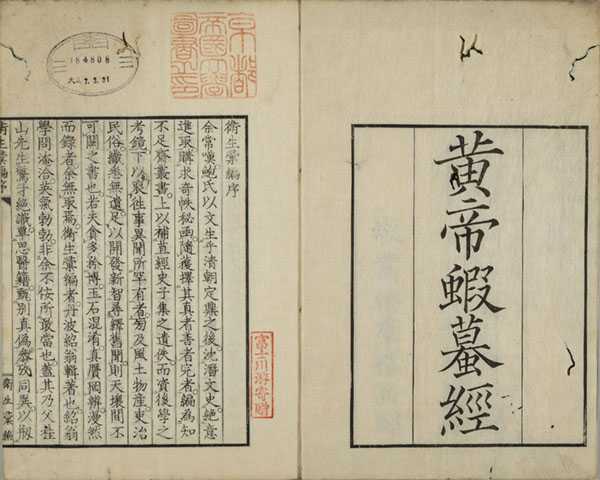 黃帝蝦蟇經
京都
帝國大學
圖書之印
184808
大正7.3.31
富士川游寄贈
衛生彙編序
余常嘆鮑氏以文生乎清朝定鼎之後沈潛文史絶意
進取購求奇帙秘函隨獲擇其真者善者完者編為知
不足齋叢書上以補苴經史子集之遺佚而資後學之
考鏡下以裒往事異聞所罕有者菊及風土物産吏治
民俗纖悉無遺足以開發新智尋繹舊聞則天壤間不
可闕之書也若夫貪多務博玉石混淆真贋罔辨漫然
而錄者余無取焉衛生彙編者丹波紹翁輯著也紹翁
學問淹洽英氣勃勃非余不佞所敢當也蓋其乃父桂
山先生驚才絶識覃思醫籍甄別真偽參攷同異以刱
衛生彙編序
衛生彙編